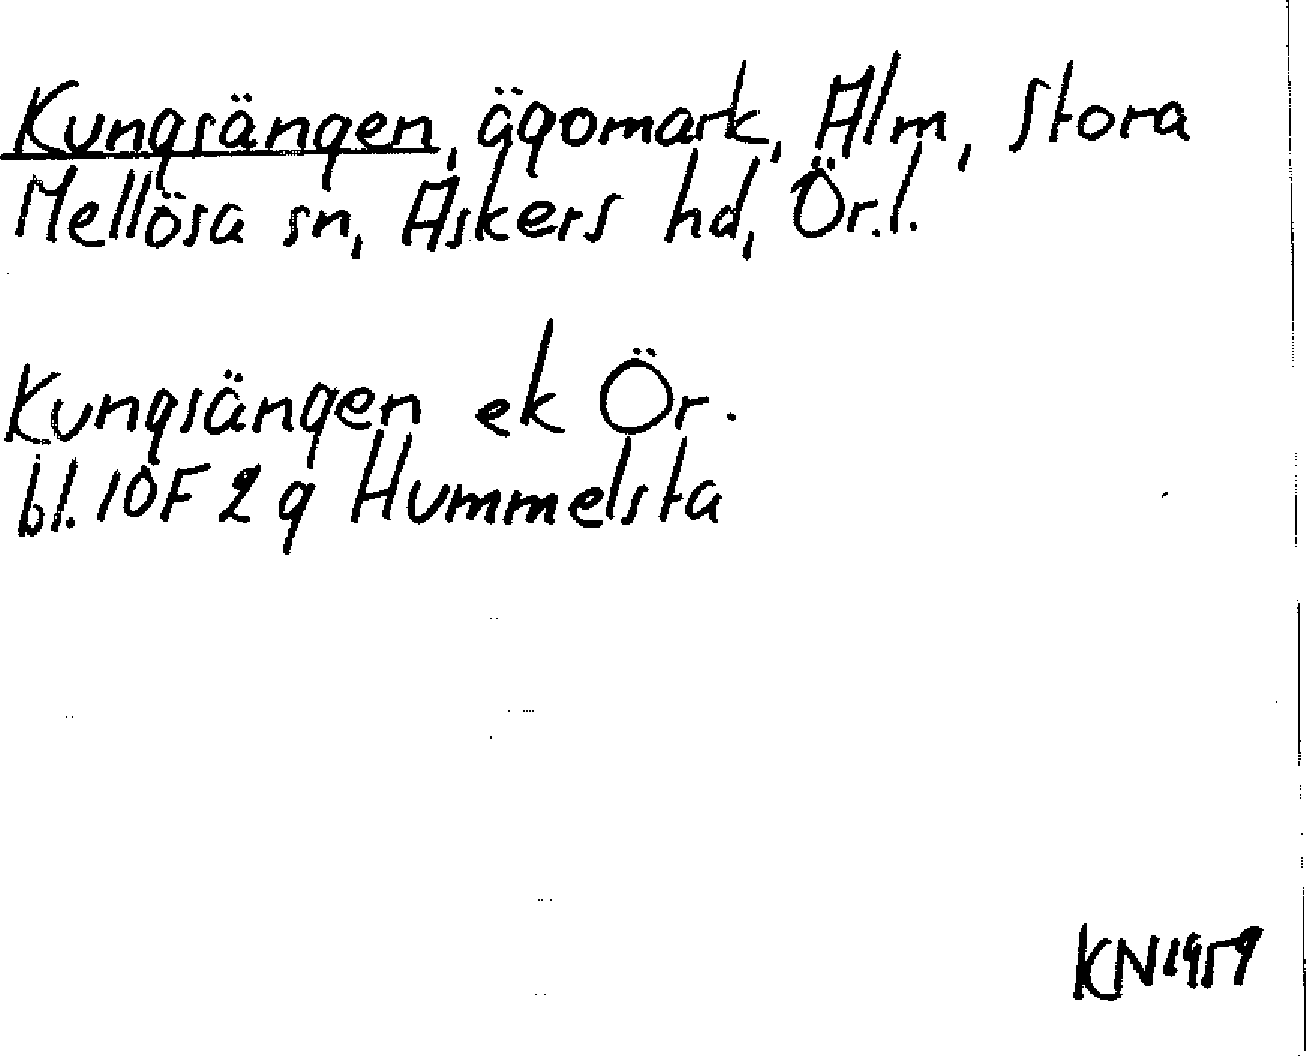 Kungsängen, ägomark, Alm, Stora
Mellösa sn, Askers hd, Ör.l.
Kungsängen ek Ör.
bl. 10F 2g Hummelsta
KN 1959